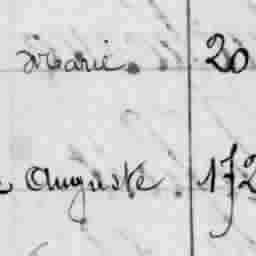 Marie. 20
Auguste. 172